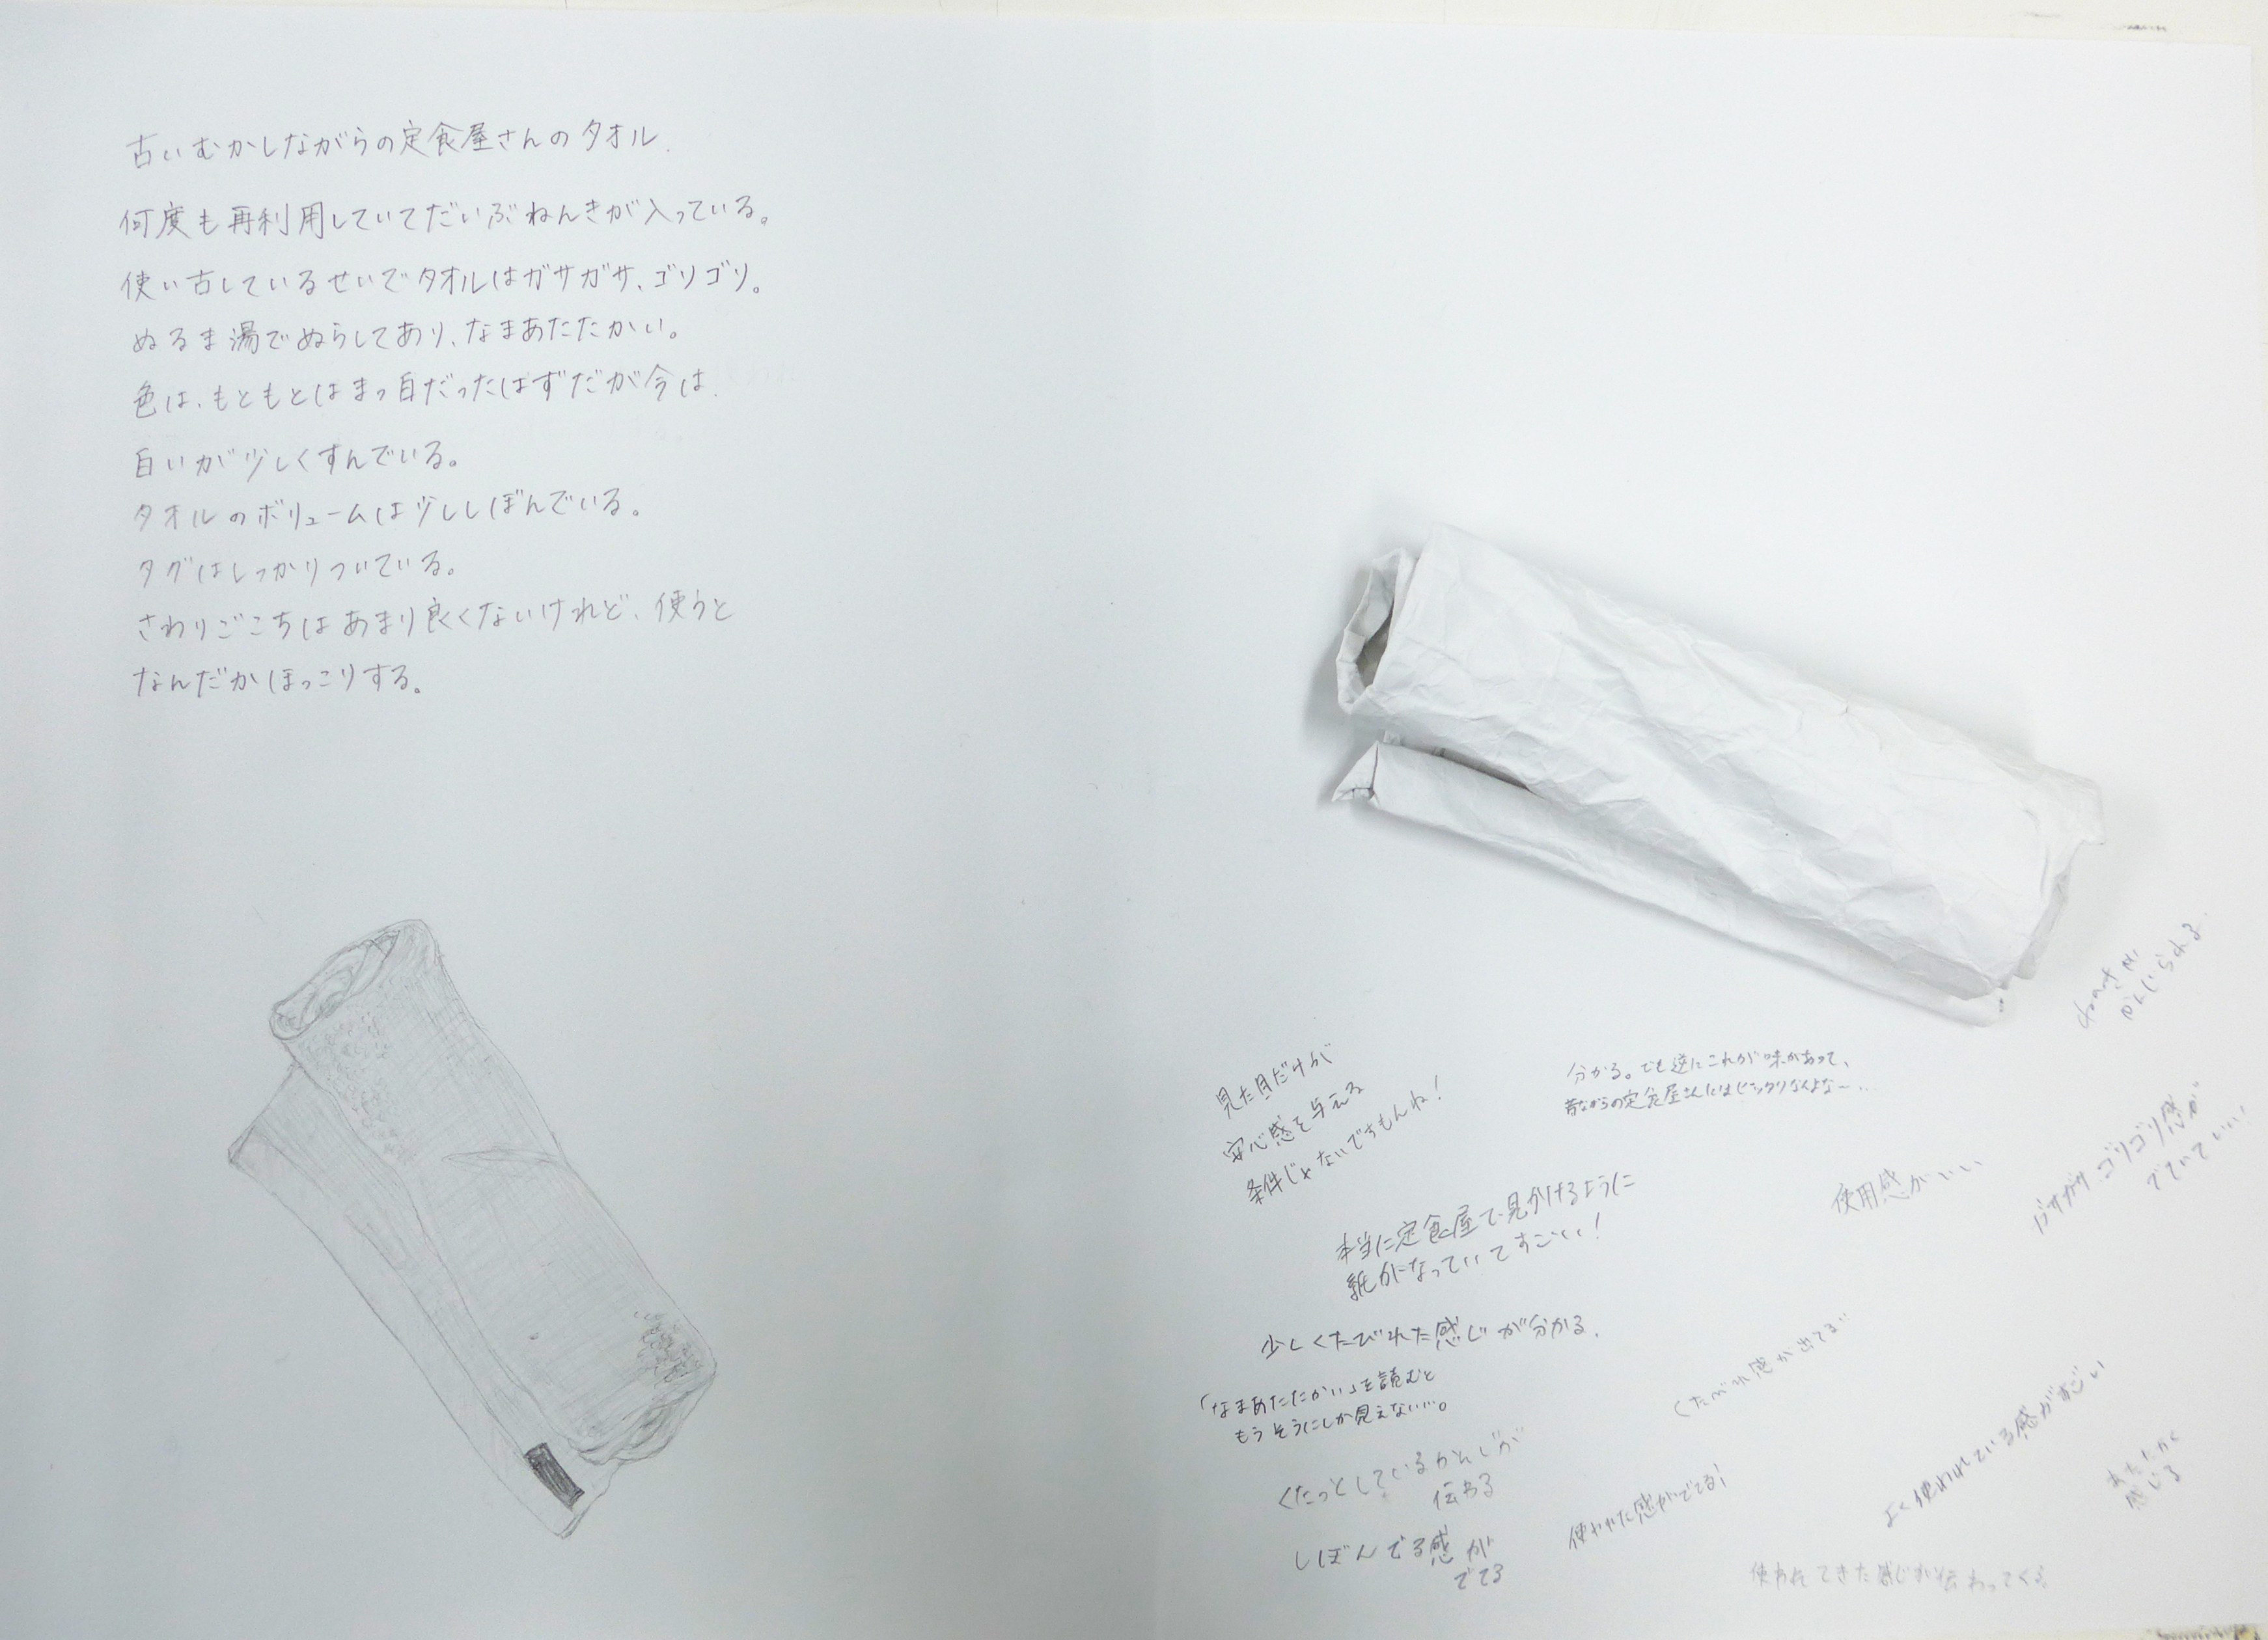 古いむかしながらの定食屋さんのタオル.
何度も再利用していてだいぶねんきが入っている。
使い古しているせいでタオルはガサガサ、ゴリゴリ。
ぬるま湯でぬらしてあり、なまあたたかい。
色は、もともとはまっ白だったはずだが今は、
白いが少しくすんでいる。
タオルのボリュームは少ししぼんでいる。
タグはしっかりついている。
さわりごこちはあまり良くないけれど、使うと
なんだかほっこりする。
見た目だけが
安心感を与える
条件じゃないですもんね!
分かる。でも逆にこれが味があって、
昔ながらの定食屋さんには
かんじられる
ガサガサ、ゴリゴリ感が
でていていい
使用感がいい
本当に定食屋で見かけるように
紙がなっていてすごい!
少しくたびれた感じが分かる.
「なまあたたかい」を読むと
もうそうにしか見えない…。
くたっとしているかんじが
伝わる
しぼんでる感が
でてる
くたびれ感が出てる
使われた感がでてる!
よく使われている感がすごい
あたたかく
感じる
使われてきた感じが伝わってくる